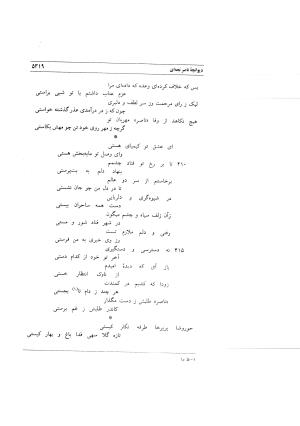 دیوانچهٔ ناصر نعمانی
۵۳۱۹
بس که خلاف کرده‌ای وعده که داده‌ای مرا
عزم عتاب داشتم با تو شبی براستی
لیک ز رای مرحمت وز سر لطف و دلبری
چون که ز در درآمدی عذر گذشته خواستی
هیچ نکاهد از وفا دناصره مهربان تو
گرچه ز مهر روی خود تن چو مهش بکاستی
*
ای عشق تو کیمیای هستی
وای وصل تو مایه‌بخش هستی
۴۱۰ تا بر رخ تو فتاد چشمم
بنهاد دلم به بت‌پرستی
برخاستم از سر دو عالم
تا در دل من چو جان نشستی
در شیوه‌گری و دلربایی
دست همه ساحران ببستی
زآن زلف سیاه و چشم میگون
در شهر فتاد شور و مستی
رفتی و دلم ملازم تست
بر وی خبری به من فرستی
۴۱۵ نه دسترسی و دستگیری
آخر تو خود از کدام دستی
باز آی که دیدهٔ امیدم
از ناوک انتظار خستی
زودا که کشیم در کمندت
هر چند ز دام (۱) بجستی
دناصره طلبش ز دست مگذار
کاندر طلبش ز غم برستی
*
حوروشا پریرخا طرفه نگار کیستی
تازه گلا سهی قدا باغ و بهار کیستی